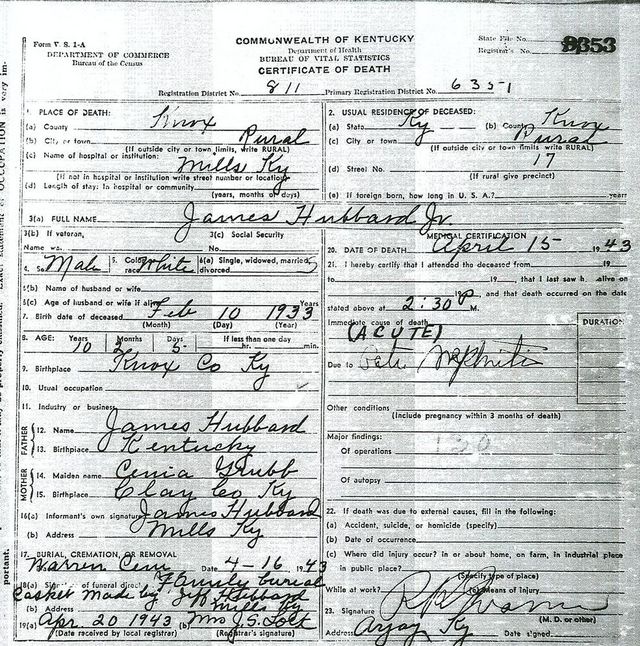 Form V. S. 1-A
DEPARTMENT OF COMMERCE
Bureau of the Census
COMMONWEALTH OF KENTUCKY
Department of Health
BUREAU OF VITAL STATISTICS
CERTIFICATE OF DEATH
State File No.
Registrar's No. 9353
Registration District No. 811 Primary Registration District No. 6351
1. PLACE OF DEATH:
(a) County Knox
(b) City or town Rural
(If outside city or town limits, write RURAL)
(c) Name of hospital or institution: Mills Ky
(If not in hospital or institution write street number or location)
(d) Length of stay: In hospital or community
(years, months or days)
2. USUAL RESIDENCE OF DECEASED:
(a) State Ky (b) County Knox
(c) City or town Rural
(If outside city or town limits write RURAL)
(d) Street No. 17
(If rural give precinct)
(e) If foreign born, how long in U. S. A.? years
3(a) FULL NAME James Hubbard Jr
3(b) If veteran, 3(c) Social Security
Name war No.
4. Sex Male 5. Color or race White 6(a) Single, widowed, married, divorced S
6(b) Name of husband or wife
6(c) Age of husband or wife if alive Years
7. Birth date of deceased Feb 10 1933
(Month) (Day) (Year)
8. AGE: Years Months Days If less than one day
10 2 5 hr. min.
9. Birthplace Knox Co Ky
10. Usual occupation
11. Industry or business
FATHER
12. Name James Hubbard
13. Birthplace Kentucky
MOTHER
14. Maiden name Cenia Grubb
15. Birthplace Clay Co Ky
16(a) Informant's own signature James Hubbard
(b) Address Mills Ky
17. BURIAL, CREMATION, OR REMOVAL
Warren Cem Date 4-16 1943
18(a) Signature of funeral director Family burial
Casket Made by Jeff Hubbard
(b) Address Mills Ky
19(a) Apr. 20 1943 (b) Mrs J.S. Lock
(Date received by local registrar) (Registrar's signature)
MEDICAL CERTIFICATION
20. DATE OF DEATH April 15 1943
21. I hereby certify that I attended the deceased from 19
to 19 , that I last saw h alive on
19 , and that death occurred on the date
stated above at 2:30 P M.
Immediate cause of death DURATION
(ACUTE)
Due to Nephritis
Other conditions
(Include pregnancy within 3 months of death)
Major findings:
Of operations 130
Of autopsy
22. If death was due to external causes, fill in the following:
(a) Accident, suicide, or homicide (specify)
(b) Date of occurrence
(c) Where did injury occur? in or about home, on farm, in industrial place
in public place?
(Specify type of place)
While at work? (e) Means of injury
23. Signature
(M. D. or other)
Address Arjay Ky Date signed
portant.